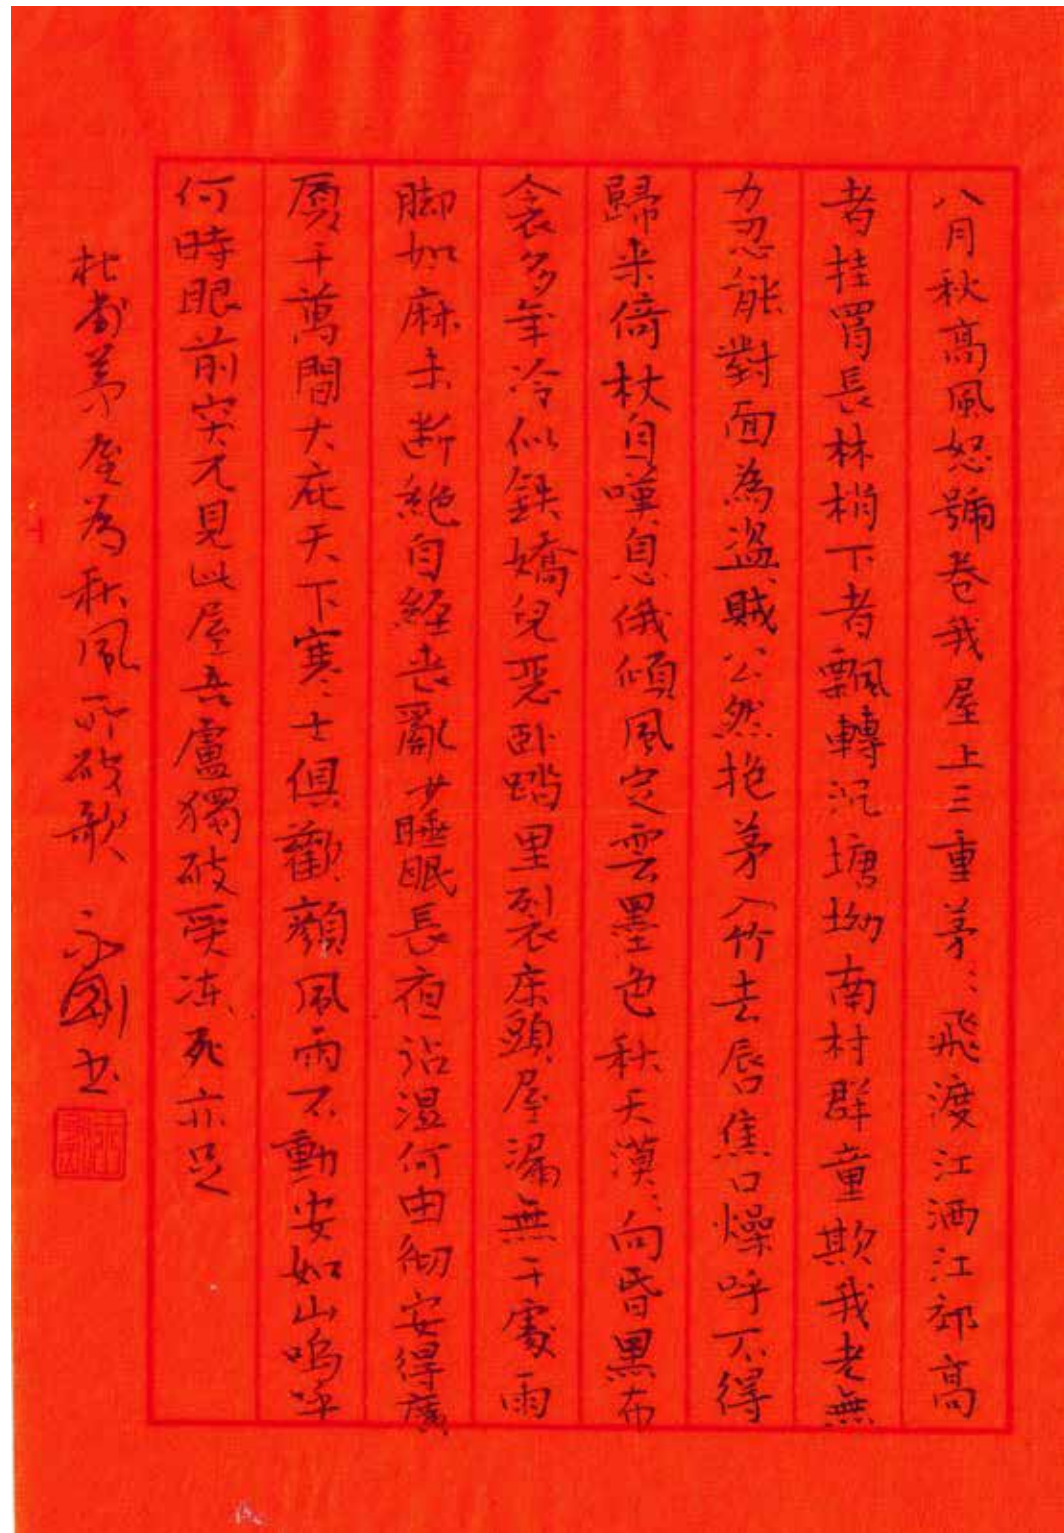 八月秋高風怒號卷我屋上三重茅〻飛渡江洒江郊高
者挂罥長林梢下者飄轉沉塘坳南村群童欺我老無
力忍能對面為盜賊公然抱茅入竹去唇焦口燥呼不得
歸來倚杖自嘆息俄傾風定雲墨色秋天漠〻向昏黑布
衾多年冷似鉄嬌兒惡卧踏里裂床頭屋漏無干處雨
脚如麻未断絶自經丧亂少睡眠長夜沾湿何由彻安得廣
厦千萬間大庇天下寒士俱歡顔風雨不動安如山嗚呼
何時眼前突兀見此屋吾盧獨破受冻死亦足
杜甫茅屋為秋風所破歌 永剛书